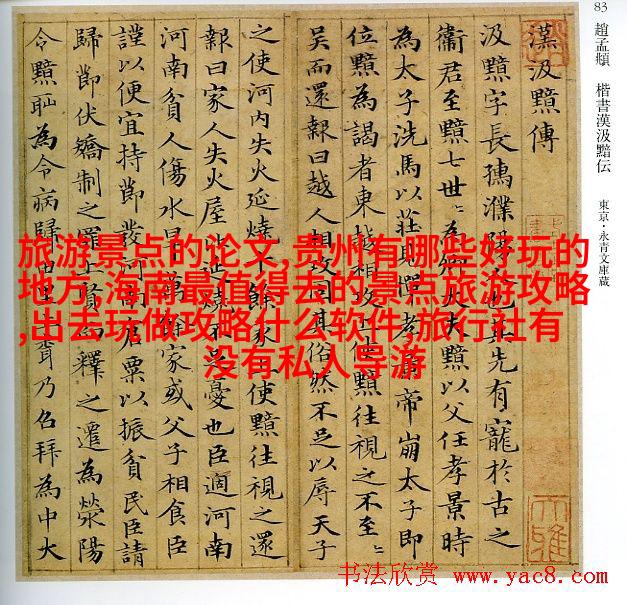 83
趙孟頫 楷書漢汲黯伝 東京・永青文庫蔵
漢汲黯傳
汲黯字長孺濮陽人也其先有寵於古之
衞君至黯七世〻為卿大夫黯以父任孝景時
為太子洗馬以莊見憚孝景帝崩太子即
位黯為謁者東越相攻上使黯往視之不至〻
吳而還報曰越人相攻固其俗然不足以辱天子
之使河内失火延燒千餘家上使黯往視之還
報曰家人失火屋比延燒不足憂也臣適河南
河南貧人傷水旱萬餘家或父子相食臣
謹以便宜持節發河南倉粟以振貧民臣請
歸節伏矯制之罪上賢而釋之遷為滎陽
令黯恥為令病歸田里上乃召拜為中大
旅游景点的论文,贵州有哪些好玩的
地方,海南最值得去的景点旅游攻略
,出去玩做攻略什么软件,旅行社有
没有私人导游
书法欣赏 www.yac8.com